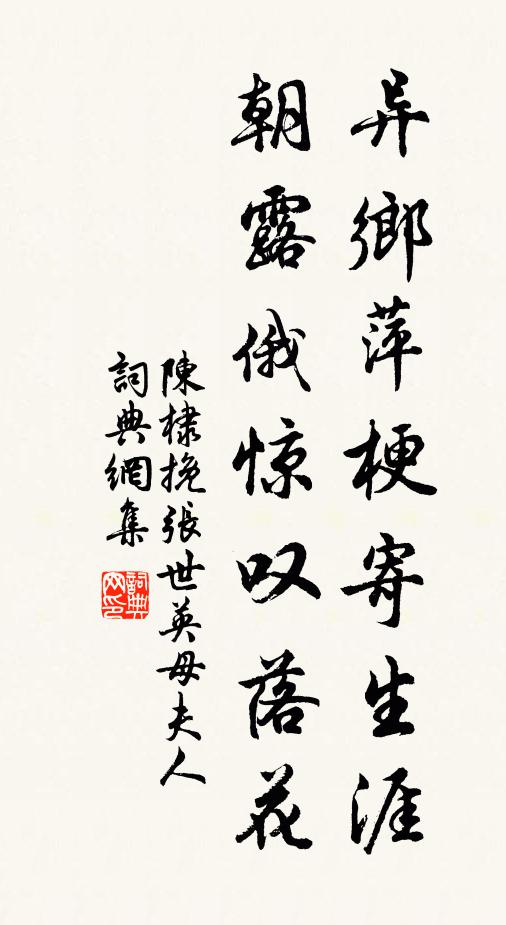 异鄉萍梗寄生涯
朝露俄惊叹落花
陳棣挽張世英母夫人
詞典網集
詞典网印